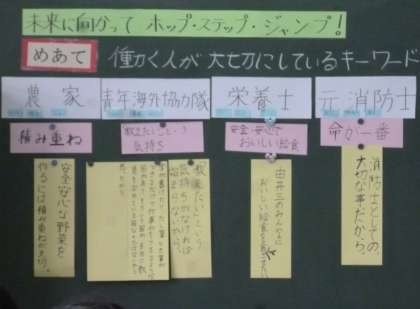 未来に向かって ホップ・ステップ・ジャンプ!
めあて 働く人が大切にしているキーワード
農家
青年海外協力隊
栄養士
元消防士
積み重ね
教えたいという
気持ち
安全・安心で
おいしい給食
命が一番
安全安心な野菜を
やるには積み重ねが大切。
教えたいという
気持ちがなければ
始まらないから。
由井三のみんなに
おいしい給食を
消防士としての
大切な事だから。